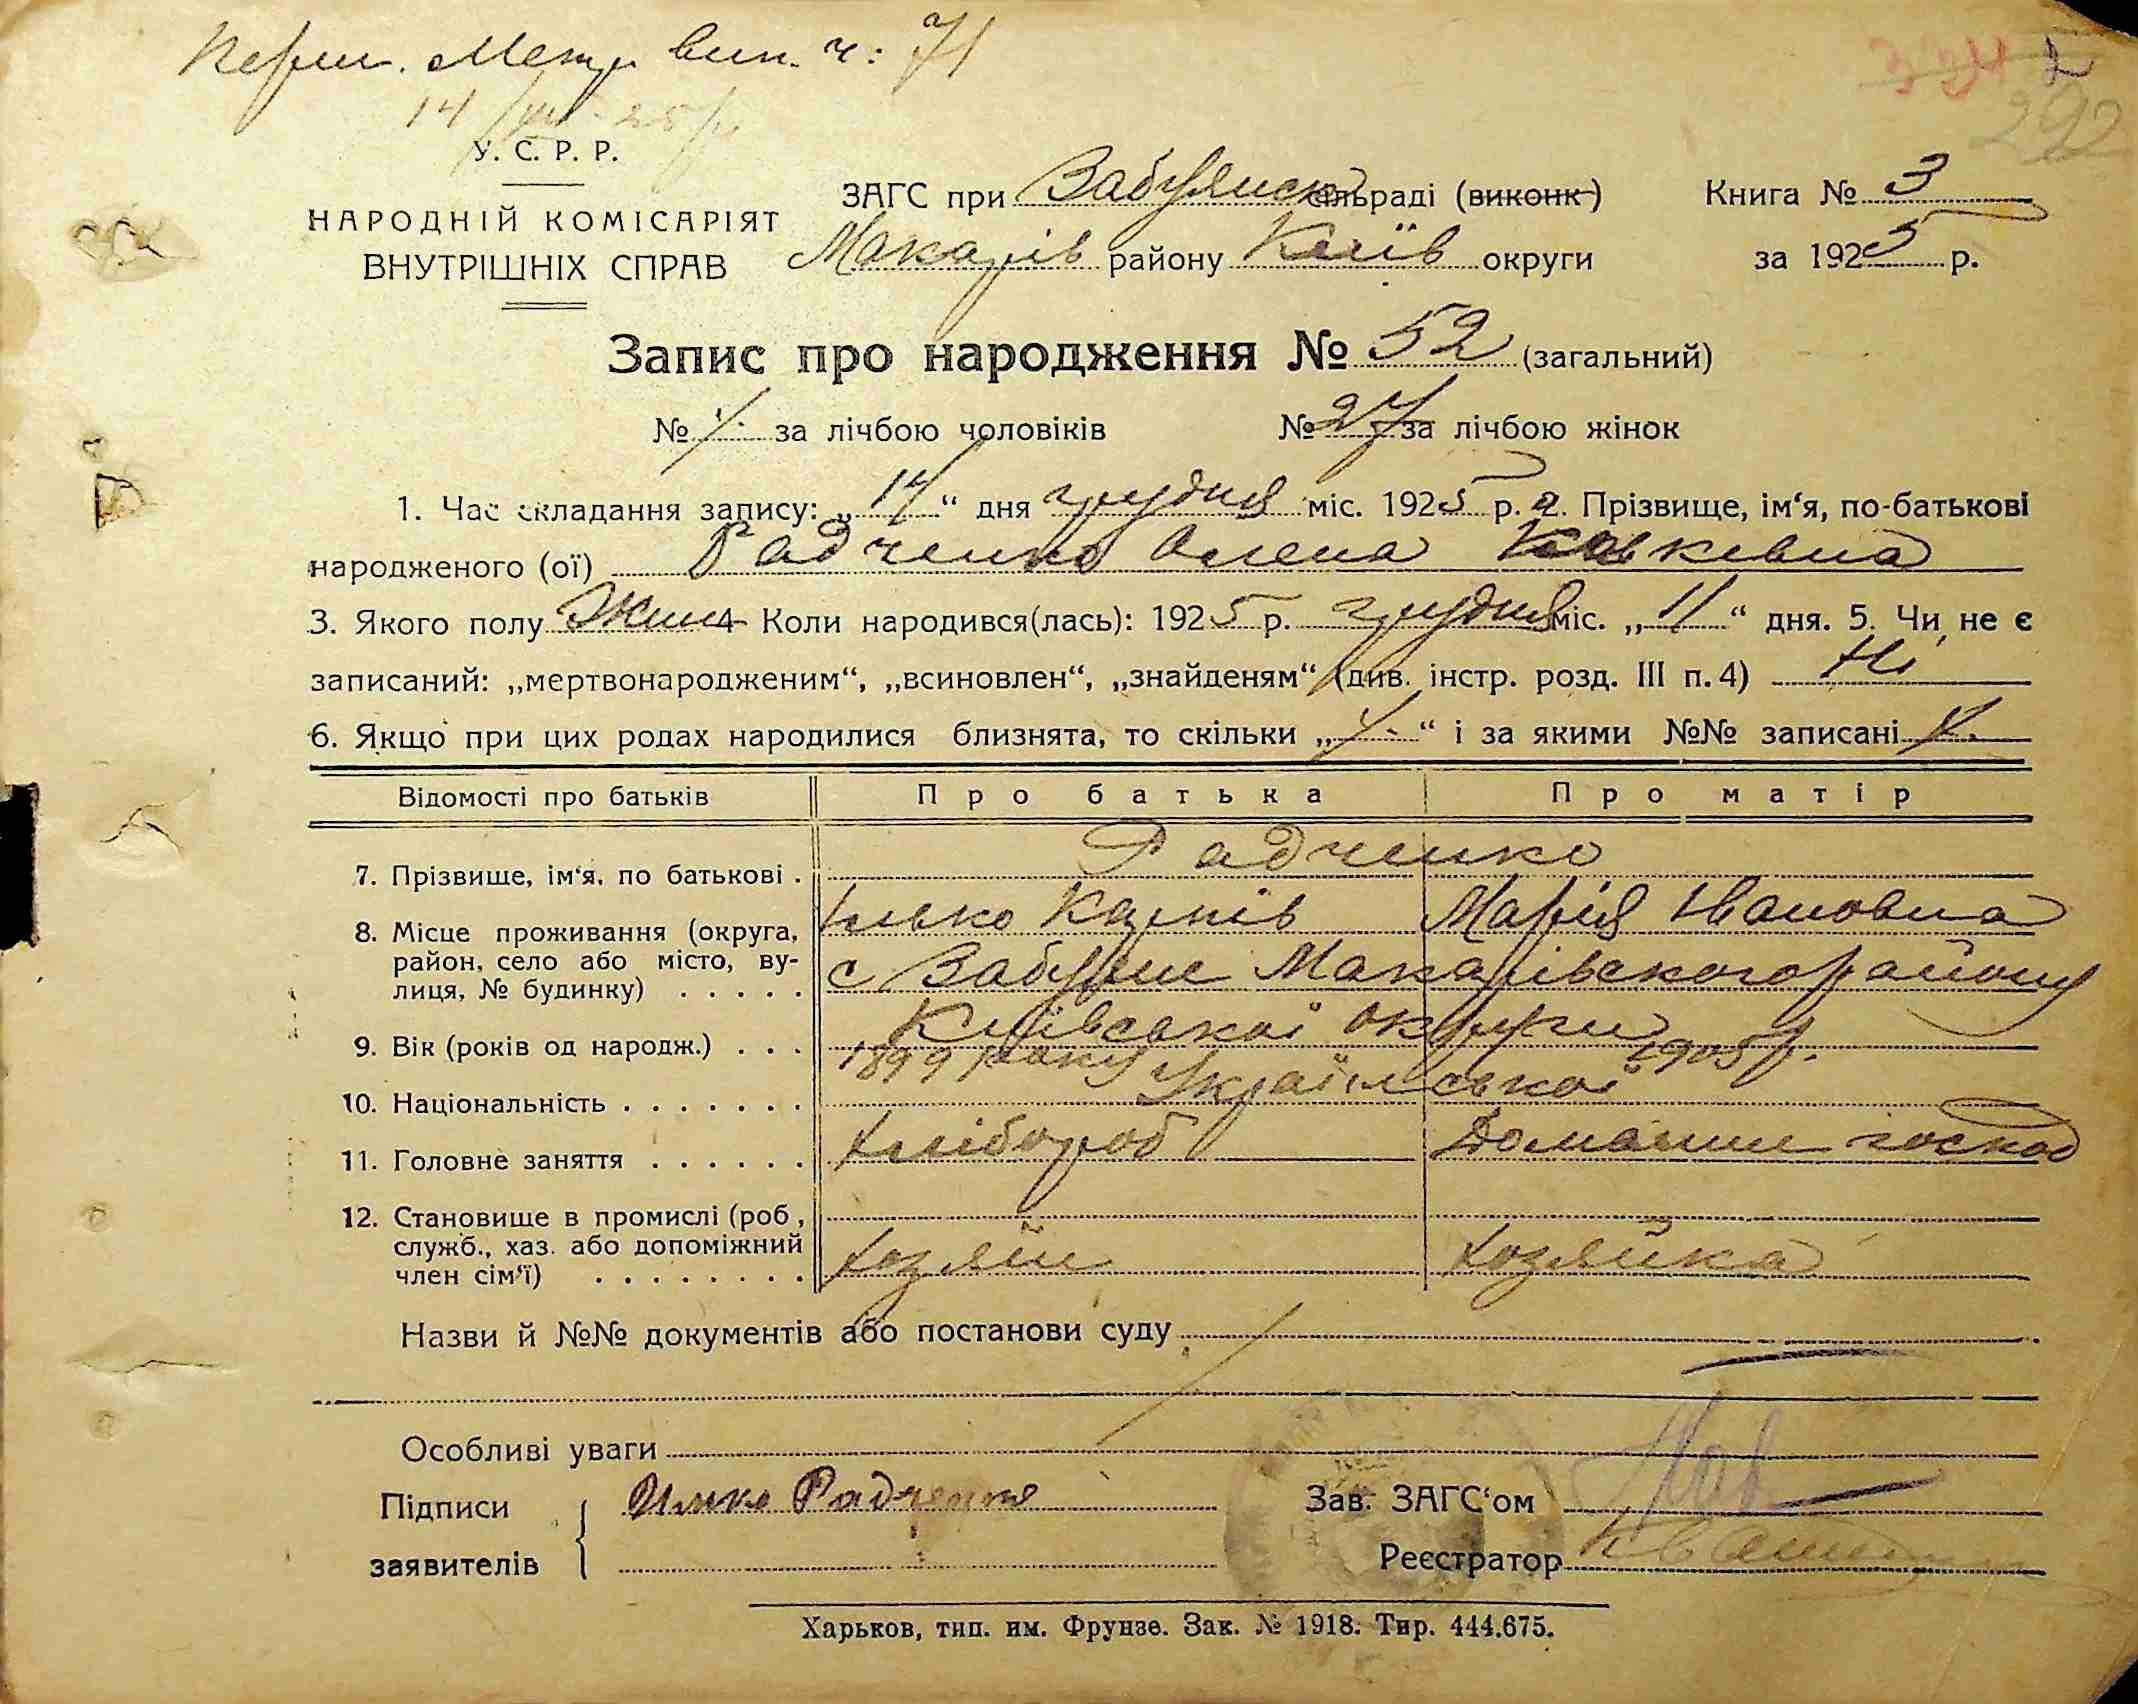 Перш. Метр. вип. ч: 71
14/XII-25 р
334 2
292
У. С. Р. Р.
НАРОДНІЙ КОМІСАРІЯТ
ВНУТРІШНІХ СПРАВ
ЗАГС при Забуянск сільраді (виконк) Книга № 3
Макарів району Київ округи за 1925 р.
Запис про народження № 52 (загальний)
№ за лічбою чоловіків № 27 за лічбою жінок
1. Час складання запису: „14“ дня грудня міс. 1925 р. 2. Прізвище, ім‘я, по-батькові
народженого (ої) Радченко Олена
3. Якого полу Жин 4 Коли народився(лась): 1925 р. грудня міс. „11“ дня. 5. Чи не є
записаний: „мертвонародженим“, „всиновлен“, „знайденям“ (див. інстр. розд. III п. 4) Ні
6. Якщо при цих родах народилися близнята, то скільки „ “ і за якими №№ записані
Відомості про батьків Про батька Про матір
Радченко
7. Прізвище, ім‘я, по батькові .
Ілько Карпів Марія Ивановна
8. Місце проживання (округа,
район, село або місто, ву-
лиця, № будинку) . . . . .
с Забуяне Макарівского району
Київської округи
9. Вік (років од народж.) . . .
1899 року 1905 р.
10. Національність . . . . . . .
Української
11. Головне заняття . . . . . .
хлібороб Домашнє господ
12. Становище в промислі (роб,
служб., хаз. або допоміжний
член сім‘ї) . . . . . . . .
хозяїн хозяйка
Назви й №№ документів або постанови суду
Особливі уваги
Підписи Илько Радченко Зав. ЗАГС‘ом
заявителів Реєстратор
Харьков, тип. им. Фрунзе. Зак. № 1918. Тир. 444.675.